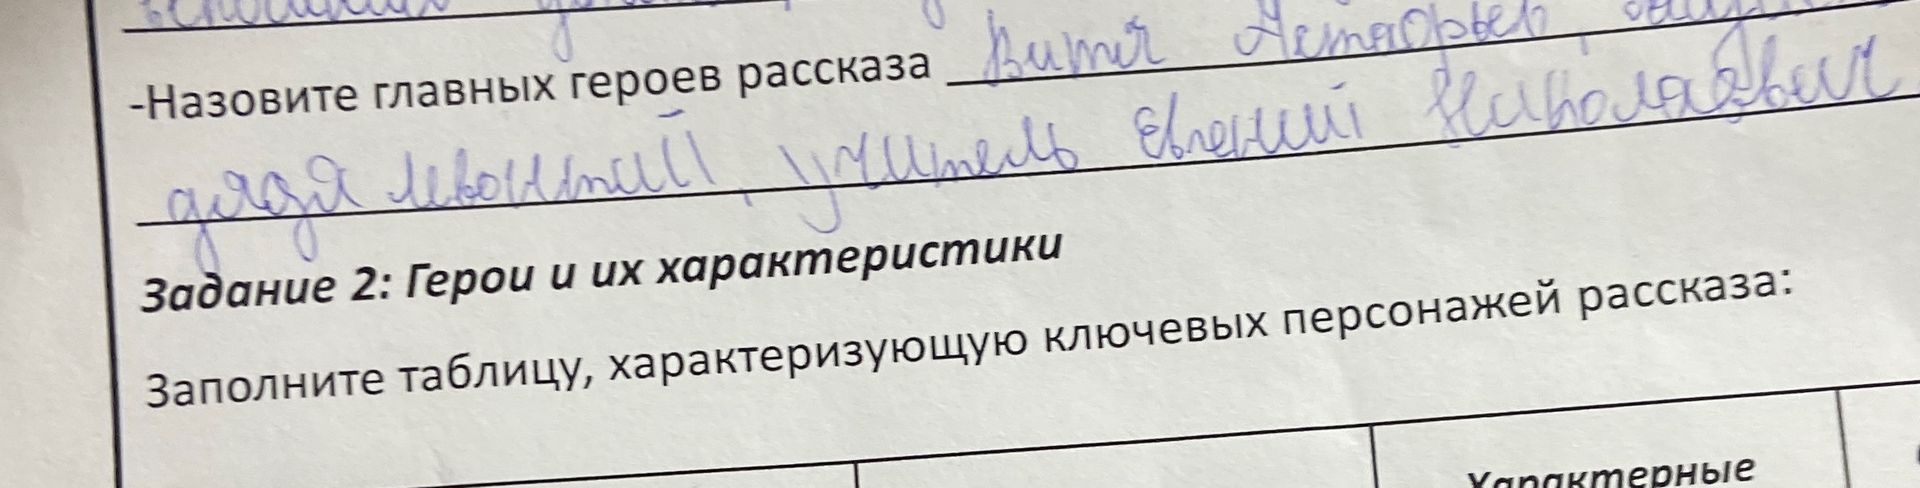 -Назовите главных героев рассказа Витя Астафьев,
дядя Левонтий, учитель Евгений Николаевич
Задание 2: Герои и их характеристики
Заполните таблицу, характеризующую ключевых персонажей рассказа:
Характерные